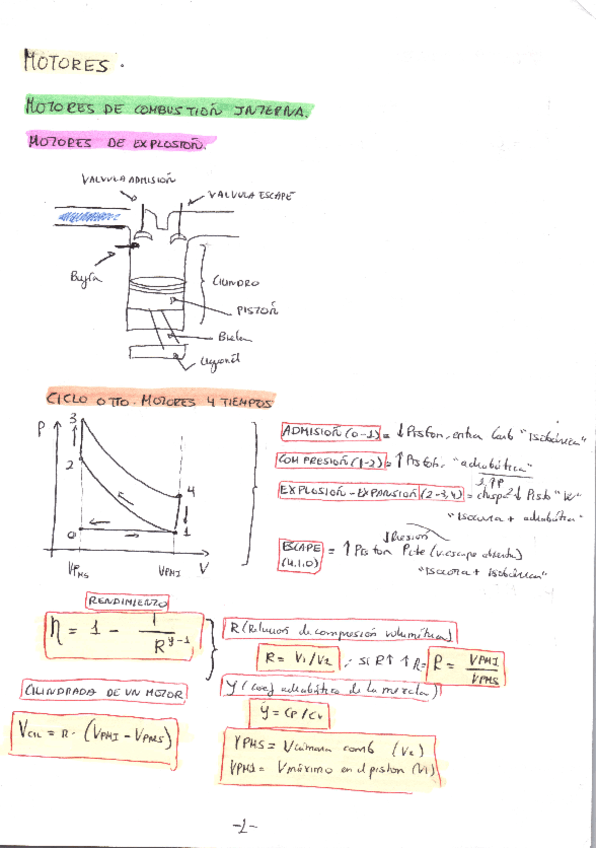 MOTORES.
MOTORES DE COMBUSTIÓN INTERNA.
MOTORES DE EXPLOSIÓN.
VALVULA ADMISIÓN
VALVULA ESCAPE
Bujía
CILINDRO
PISTÓN
Biela
Cigüeñal
CICLO OTTO. MOTORES 4 TIEMPOS
P
3
2
4
0
1
VPMS
VPMI
V
ADMISIÓN (0-1) = ↓ Piston, entra Comb "Isobárica"
COMPRESIÓN (1-2) = ↑ Piston, "adiabática"
EXPLOSIÓN-EXPANSIÓN (2-3,4) = chispa ↓ Pist
"Isocora + adiabática"
↓Presión
ESCAPE (4.1.0) = ↑ Piston (v. escape abierta)
"Isocora + isobárica"
RENDIMIENTO
η = 1 - 1/R^γ-1
R (Relación de compresión volumétrica)
R = V1/V2, si R↑ ↑ R = VPMI/VPMS
CILINDRADA DE UN MOTOR
γ (coef adiabático de la mezcla)
γ = Cp/Cv
VCIL = (VPMI - VPMS)
VPMS = V comb (V2)
VPMI = V máximo en el piston (V1)
-1-